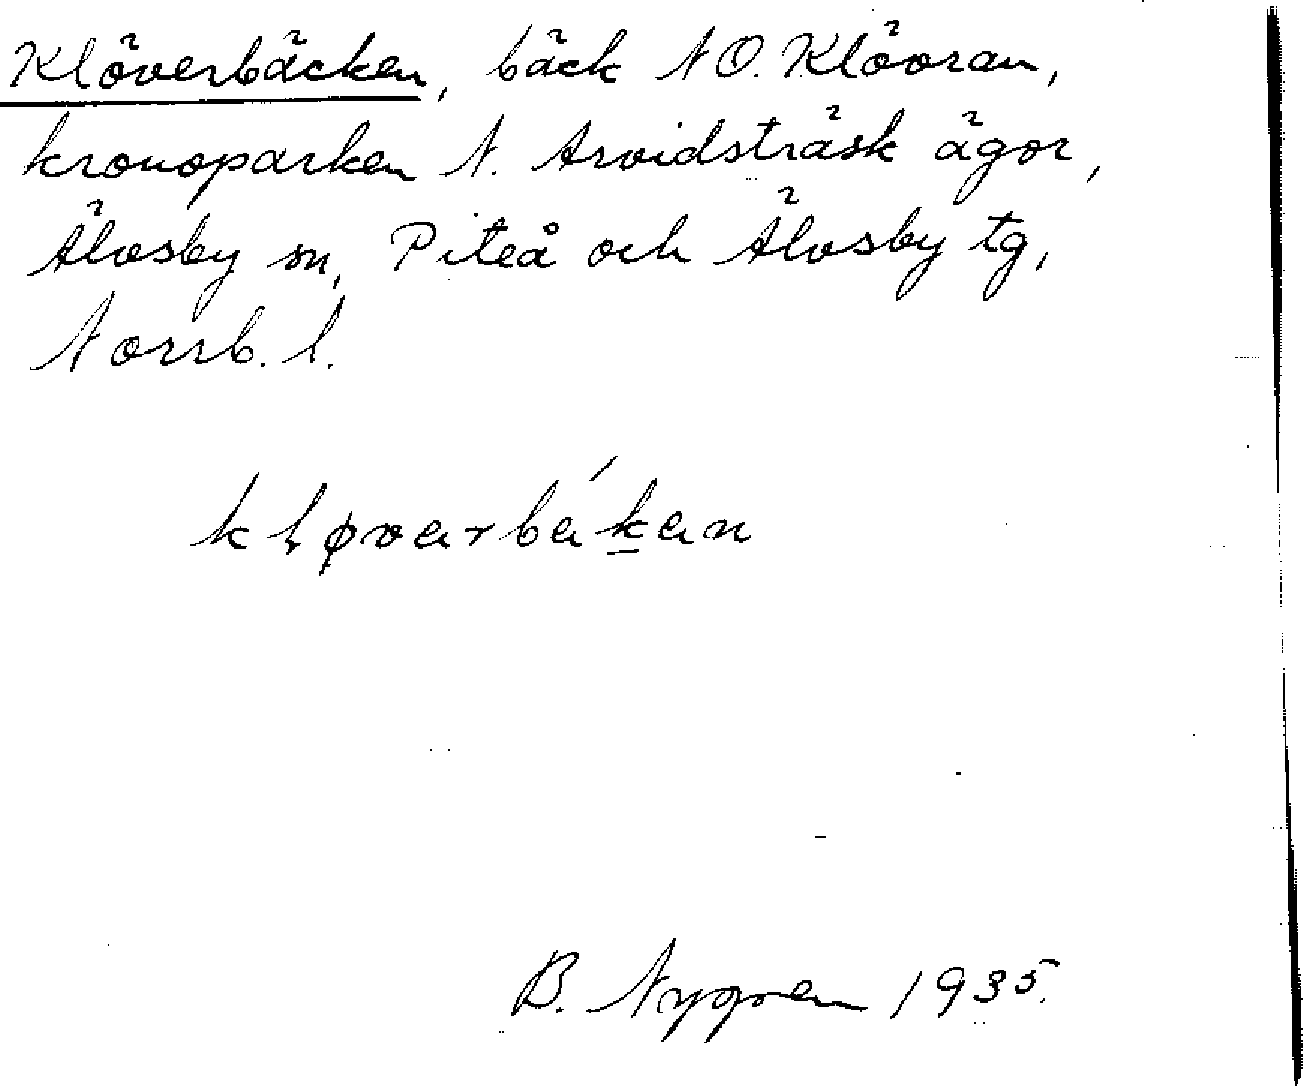 Klöverbäcken, bäck NO. Klövran,
kronoparken N. Arvidsträsk ägor,
Älvsby sn, Piteå och Älvsby tg,
Norrb. l.
B. Nygren 1935.